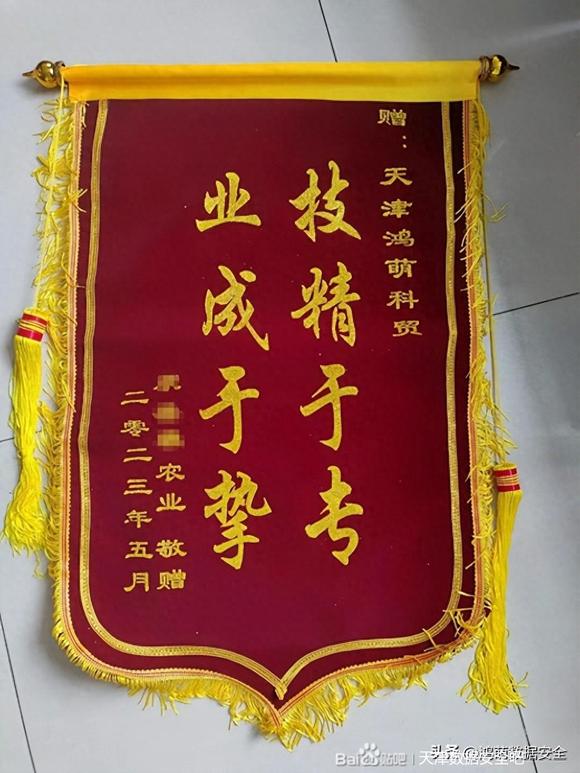 赠：天津鸿萌科贸
技精于专
业成于挚
农业 敬赠
二零二三年五月
头条 @鸿萌数据安全
Baidu贴吧 天津数据安全吧